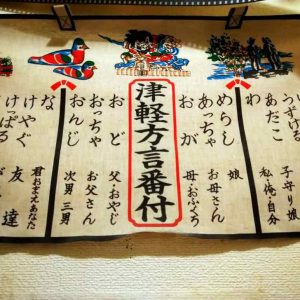 うすける
あだこ 子守り娘
わ 私・俺・自分
めらし 娘
あっちゃ お母さん
おが 母・おふくろ
津軽方言番付
おど 父・おやじ
おっちゃ お父さん
おんじ 次男 三男
な 君おまえあなた
けやぐ 友達
けぱる